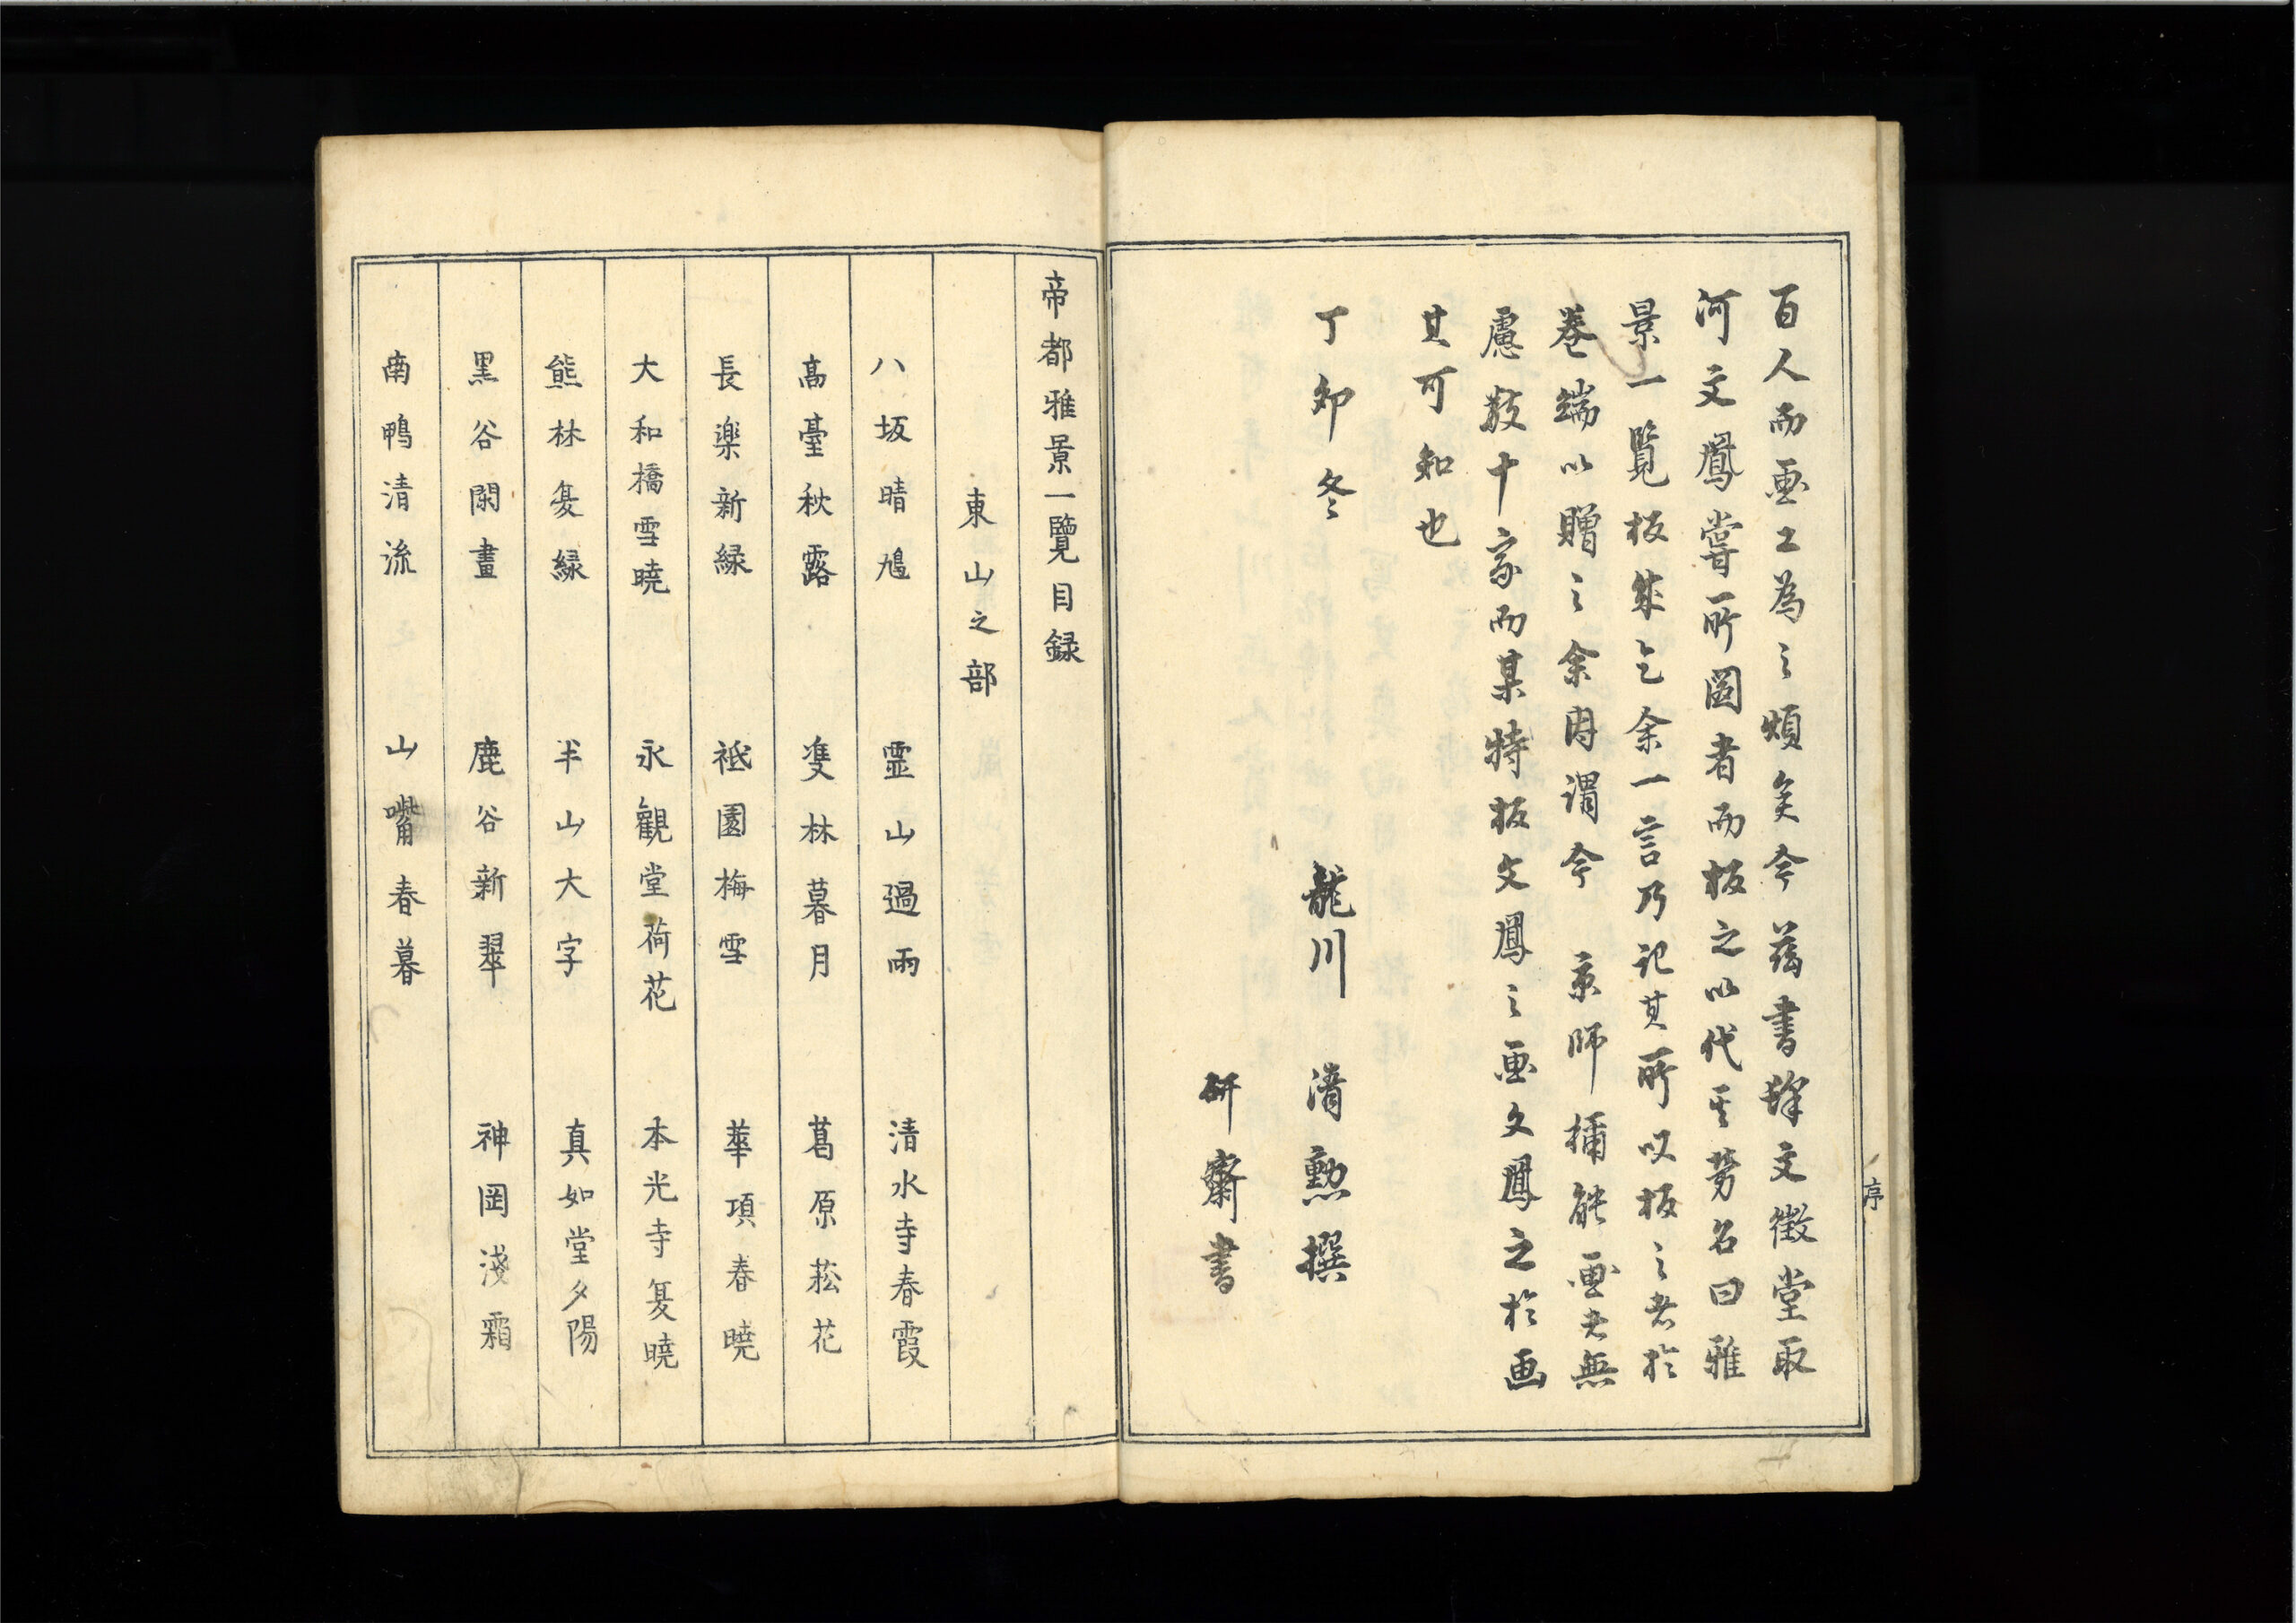 百人而画工為之煩矣今茲書肆文徵堂取
河文鳳嘗所圖者而板之以代其労名曰雅
景一覧板成乞余一言乃記其所以板之者於
巻端以贈之余因謂今 京師播能画者無
慮数十家而某特板文鳳之画文鳳之於画
其可知也
丁卯冬
龍川 清勲撰
研齋書
序
帝都雅景一覽目録
東山之部
八坂晴鳩 霊山過雨 清水寺春霞
高臺秋露 隻林暮月 葛原菘花
長楽新緑 祇園梅雪 華項春曉
大和橋雪曉 永觀堂荷花 本光寺夏曉
熊林夏緑 半山大字 真如堂夕陽
黒谷閑晝 鹿谷新翠 神岡淺霜
南鴨清流 山嘴春暮